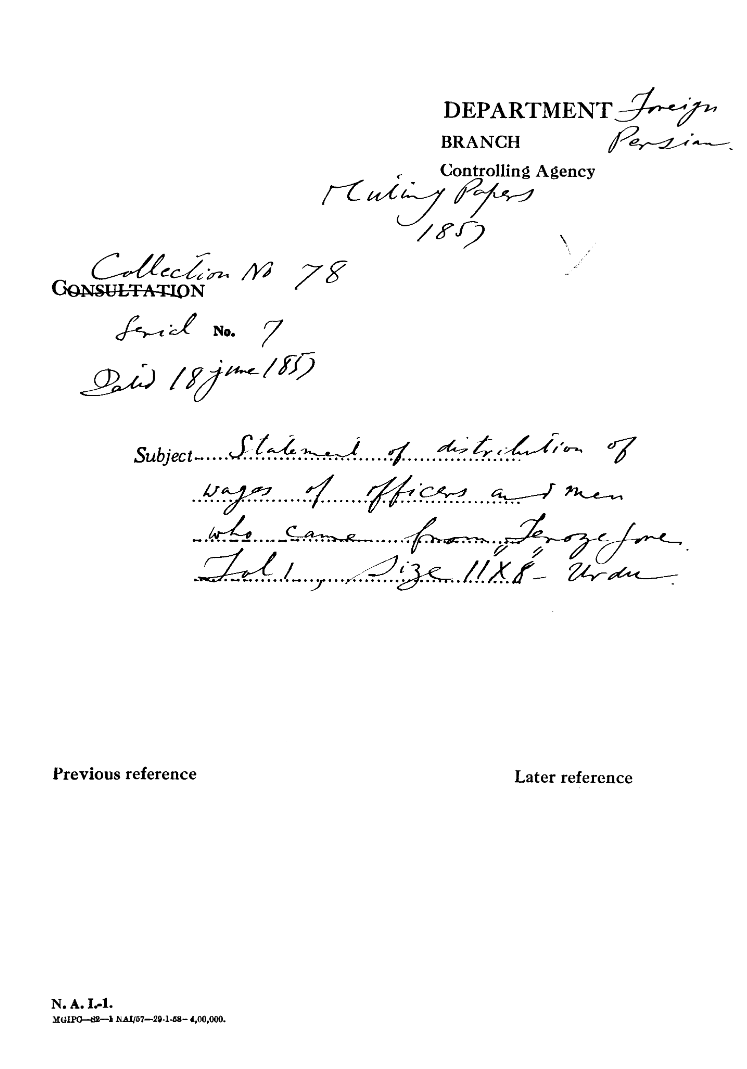 DEPARTMENT Foreign
BRANCH Persian.
Controlling Agency
Mutiny Papers
1857
Collection No 78
CONSULTATION
Serial No. 7
Dated 18 june 1857
Subject Statement of distribution of
wages of officers and men
who came from Ferozepore.
Fol 1, Size 11"X8" - Urdu
Previous reference
Later reference
N. A. I.-1.
MGIPC—82—1 NAI/57—29-1-58—4,00,000.